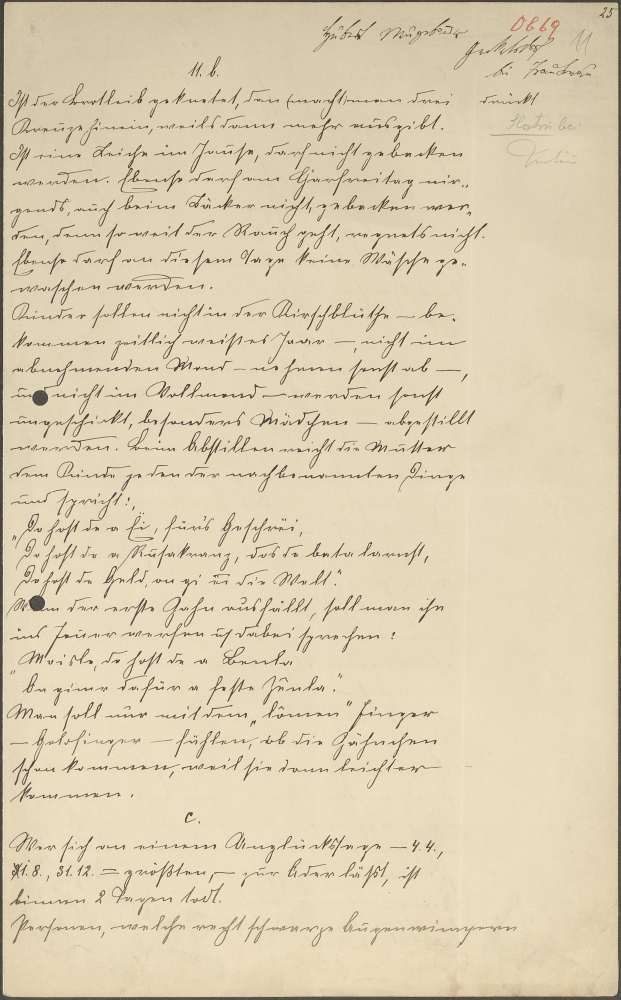 25
0669
11
11. b.
Ist der Brotleib geknetet, dan (macht) man drei drückt
Kreuze hinein, weils dann mehr ausgibt.
Ist eine Leiche im Hause, darf nicht gebacken
werden. Ebenso darf am Charfreitag nir-
gends, auch beim Bäcker nicht, gebacken wer-
den, denn so weit der Rauch geht, regnets nicht.
Ebenso darf an diesem Tage keine Wäsche ge-
waschen werden.
Kinder sollen nicht in der Kirschblüthe – be-
kommen zeitlich weißes Haar –, nicht im
abnehmenden Mond – nehmen sonst ab –,
und nicht im Vollmond – werden sonst
ungeschickt, besonders Mädchen – abgestillt
werden. Beim Abstillen reicht die Mutter
dem Kinde jeden der nachbenannten Dinge
und spricht:
"Do host de a Ei, fürs Geschrëi,
Do host de a Rusakranz, dos de bata larnst,
Do host de Geld, on gi ei die Welt."
Wenn der erste Zahn ausfällt, soll man ihn
ins Feuer werfen u. dabei sprechen:
"Moisle, do host de a Benla
On gimr dafür a feste Zünla."
Man soll nur mit dem "lömen" Finger
– Goldfinger – fühlen, ob die Zähnchen
schon kommen, weil sie dann leichter
kommen.
c.
Wer sich an einem Unglückstage – 4.4.,
1.8., 31.12. = größten, – zur Ader läßt, ist
binnen 2 Tagen todt.
Personen, welche recht schwarze Augenwimpern